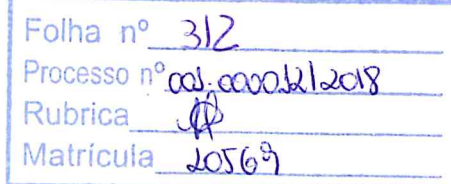 Folha nº 312
Processo nº 001.000012/2018
Rubrica
Matrícula 20569